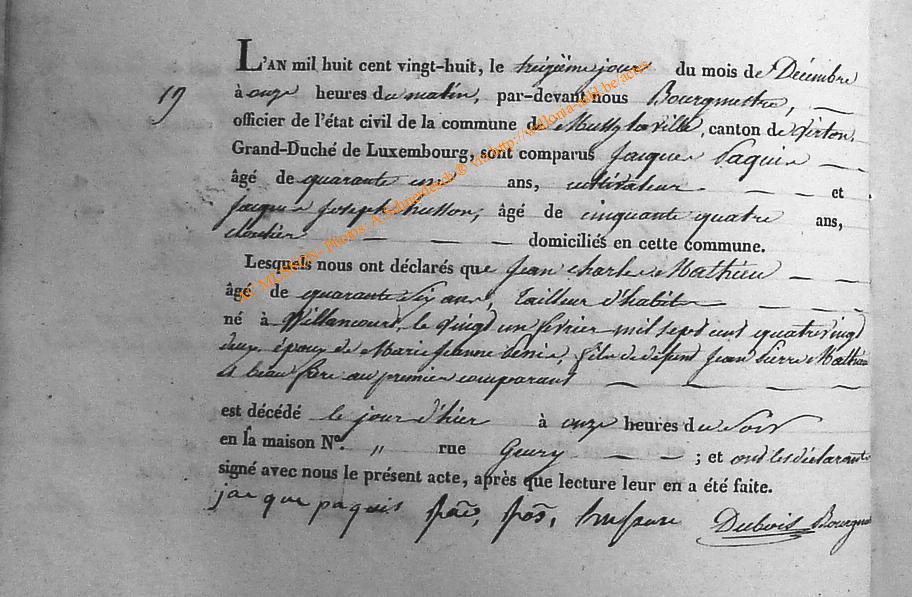 L'AN mil huit cent vingt-huit, le treizième jour du mois de Décembre
19
à onze heures du matin, par-devant nous Bourgmestre,
officier de l'état civil de la commune de Mussylaville, canton de Virton,
Grand-Duché de Luxembourg, sont comparus Jacques Paquis
âgé de quarante un ans, cultivateur et
Jacques Joseph husson, âgé de cinquante quatre ans,
cloutier domiciliés en cette commune.
Lesquels nous ont déclarés que Jean charles Mathieu
âgé de quarante six ans, tailleur d'habit
né à Willancourt, le vingt un février mil sept cent quatre vingt
deux, époux de Marie Jeanne, fils de défunt Jean Pierre Mathieu
& beau frère au premier comparant
est décédé le jour d'hier à onze heures du Soir
en la maison N°. " rue Geury ; et ont les déclarants
signé avec nous le présent acte, après que lecture leur en a été faite.
jacque paquis Dubois Bourgm
AC MUSSON- Photos: A.Schmedeick ® via http://wallonia-asbl.be/actes